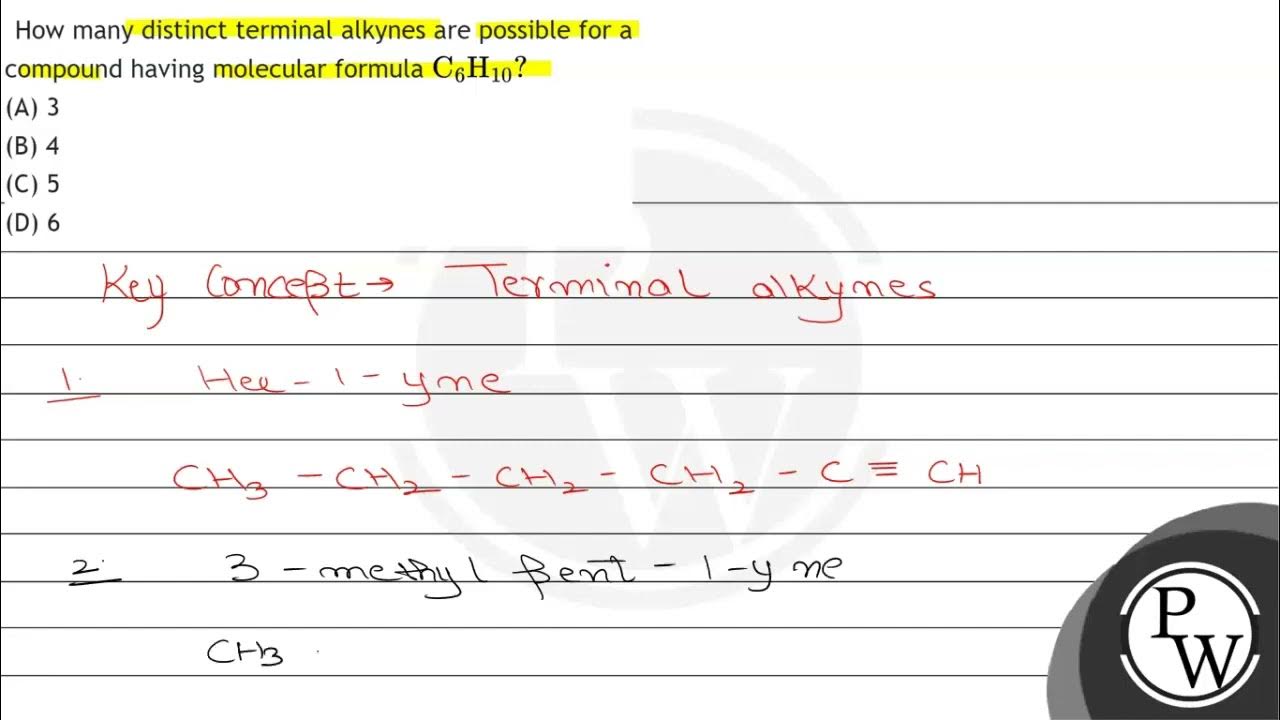 How many distinct terminal alkynes are possible for a
compound having molecular formula C₆H₁₀?
(A) 3
(B) 4
(C) 5
(D) 6
Key Concept → Terminal alkynes
1. Hex-1-yne
CH₃ - CH₂ - CH₂ - CH₂ - C ≡ CH
2. 3-methyl pent-1-yne
CH₃
P
W